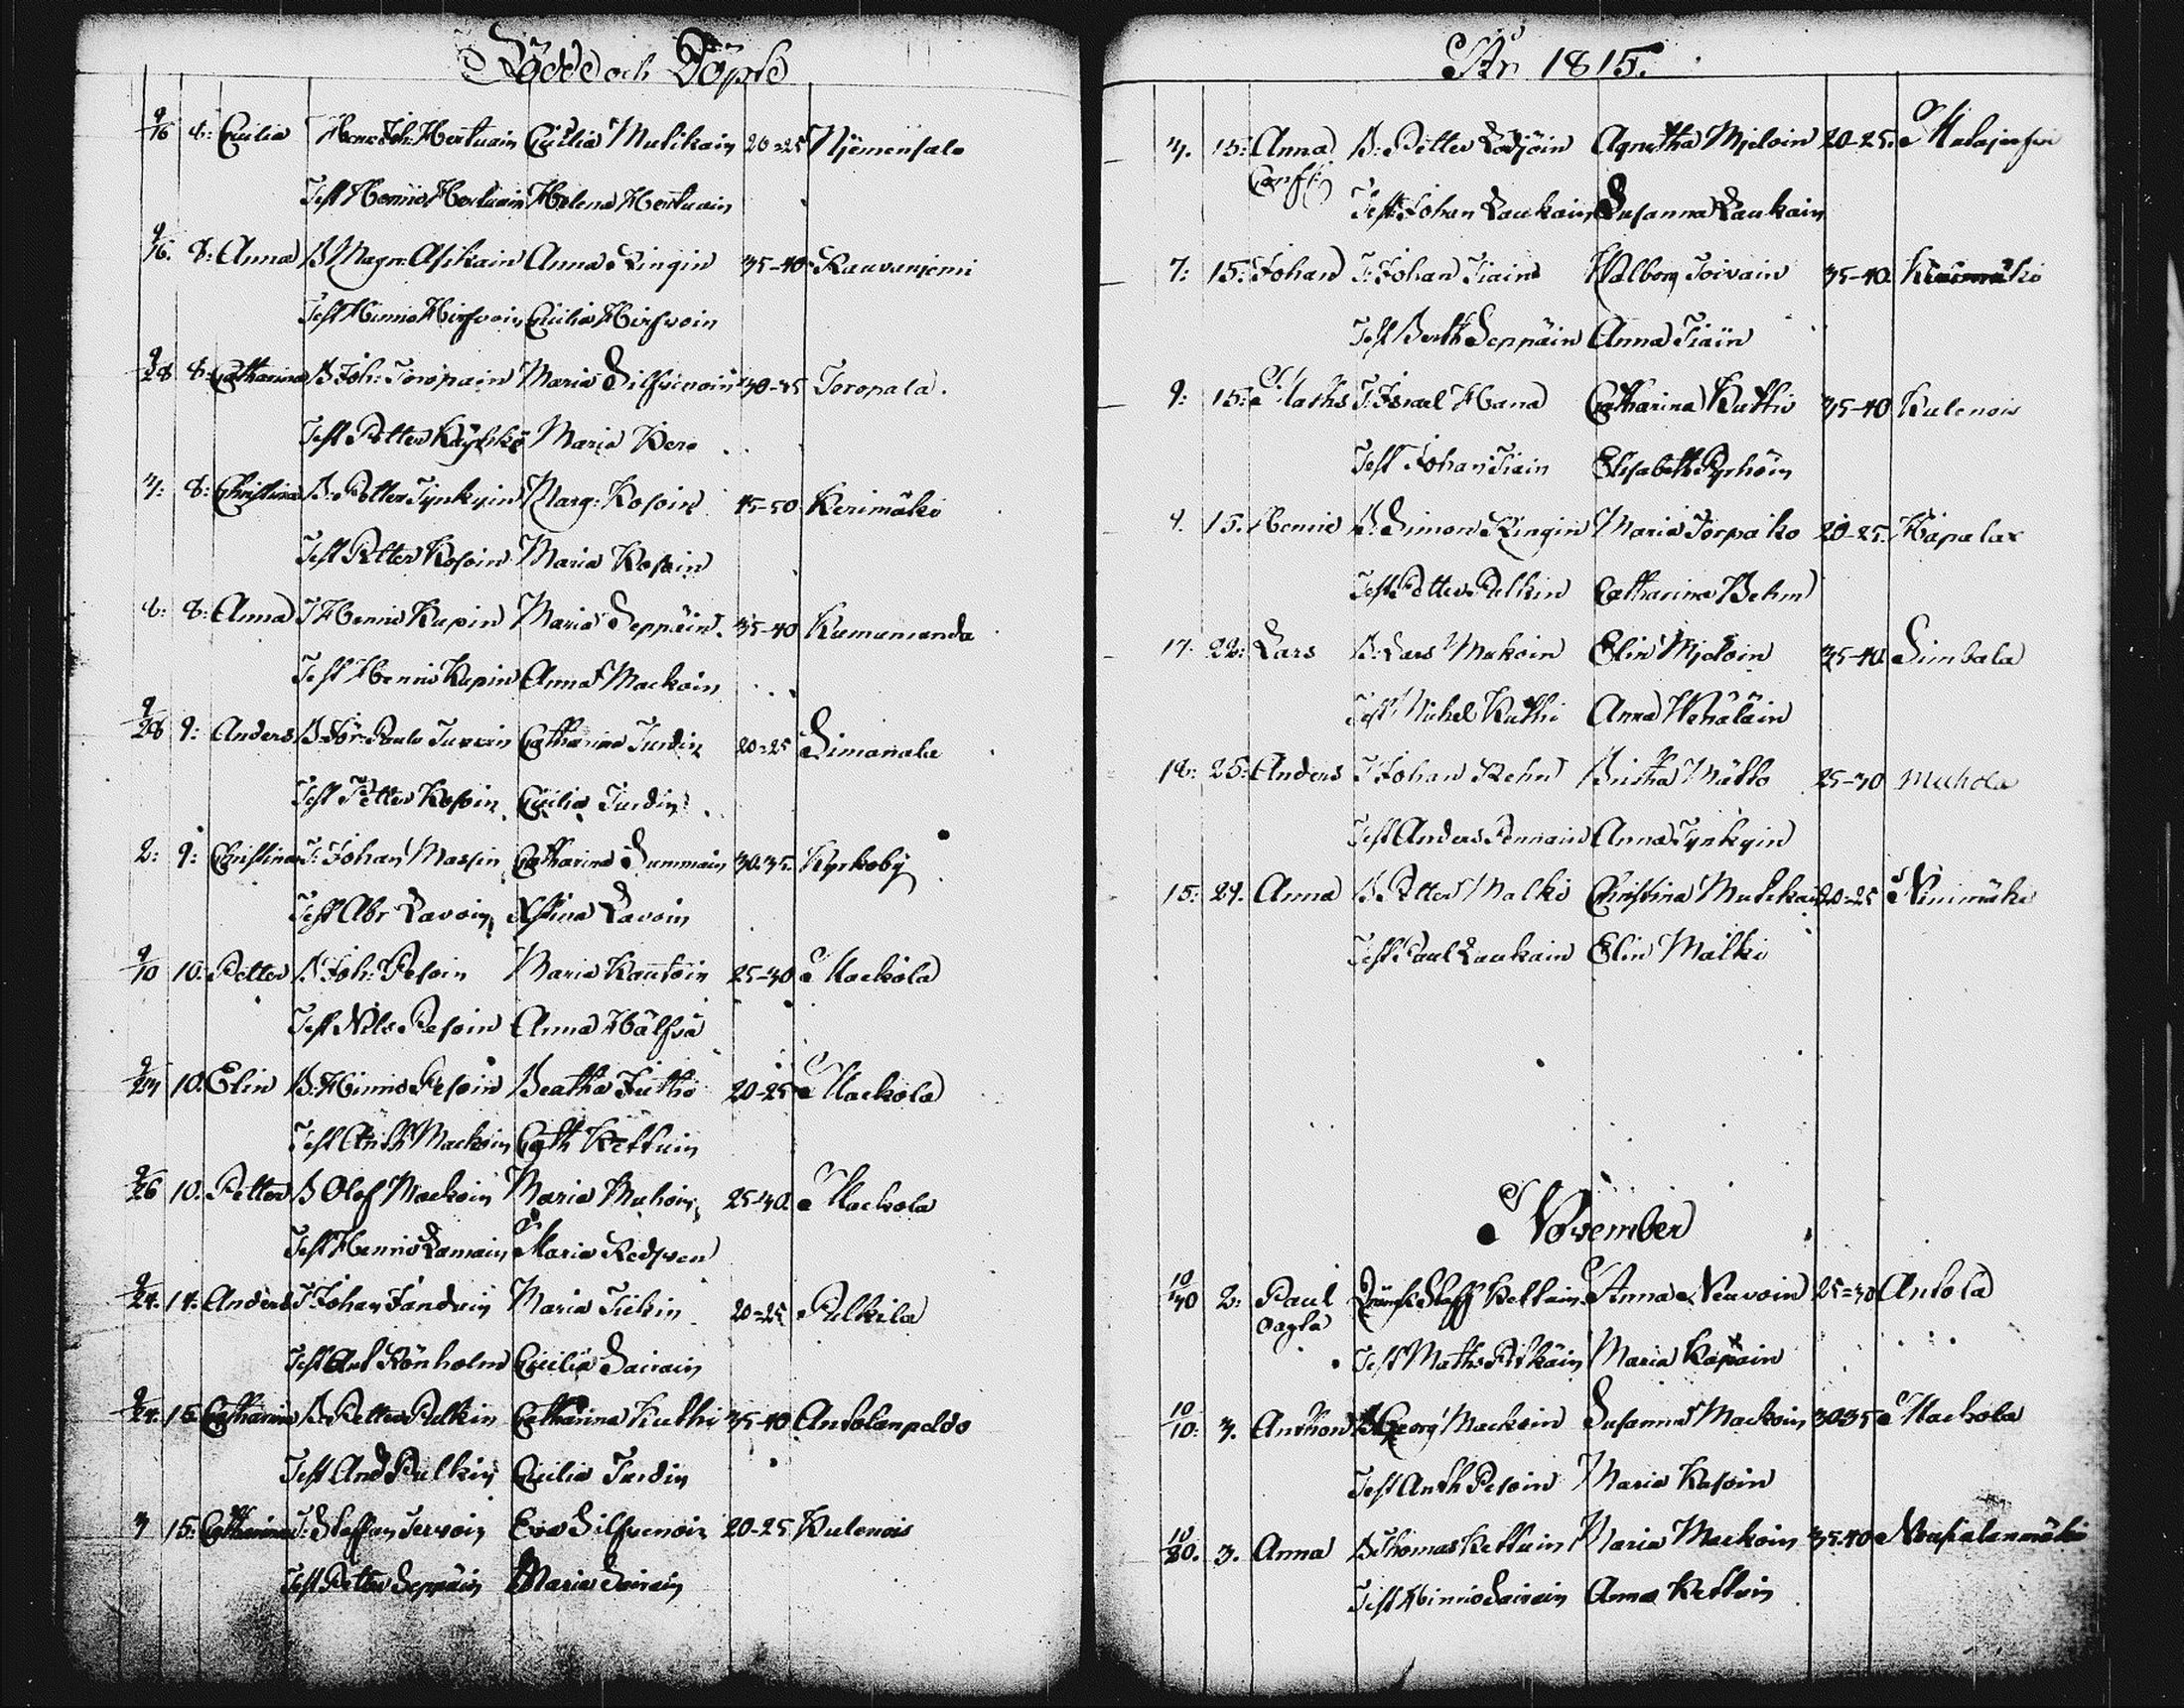 Födde och Döpte
9/16 8: Cecilia Henr Joh: Hertuain Cecilia Mutikain 20-25 Njemensalo
Test Hennric Hertuain Helena Hertuain
9/16. 8: Anna B Magn: Asikain Anna Ringin 35-40 Rauvanjemi
Test Hinric Hirfvoin Cecilia Hirfvoin
9/28 8: Catharina B Joh: Toropain Maria Silfvenoin 30-35 Toropala.
Test Petter Maria Kero
3: 8: Christina B: Petter Tynkyin Marg: Kosoin 45-50 Kerimäki
Test Petter Kosoin Maria Kosoin
6: 8: Anna T Henric Kupin Maria Seppäin 35-40 Kumunranda
Test Henric Kupin Anna Mackoin
9/28 9: Anders B Catharina Turdin 20-25 Simanala
Test Petter Kosoin Cecilia Turdin
2: 9: Christina T: Johan Massin Catharina Summain 30-35. Kyrkoby
Test Abr Lavoin Xstina Lavoin
9/10 10. Petter B Joh: Pesoin Maria Kautoin 25-30 Mackola
Test Nils Pesoin Anna Hälfvä
9/23 10. Elin B: Hinric Pesoin Beatha Juthi 20-25 Mackola
Test Anth Mackoin Cath Kettuin
9/26 10. Petter B Olof Mackoin Maria Muhoin 25-30. Mackola
Test Henric Lamain Maria Redsven
9/24. 14. Anders T Johan Janduin Maria Tiikin 20-25 Pulkila
Test Ant Rönholm Cecilia Sairain
9/24. 15 Catharina B Petter Pulkin Catharina Kuthi 35-40 Antolanpeldo
Test And Pulkin Cecilia Turdin
3 15: Catharina T: Staffan Tervoin Eva Silfvenoin 20-25 Kulenois
Test Petter Seppäin Maria Sairain
År 1815.
3. 15: Anna B: Petter Lodjöin Agnetha Mjeloin 20-25. Makajerfvi
Test Johan Laukain Susanna Laukain
7: 15: Johan T: Johan Tiain Walborg Toivain 35-40.
Test Berth Seppäin Anna Tiäin
9: 15: Maths T: Israel Hana Catharina Kuthi 35-40 Kulenois
Test Johan Tiain Elisabeth Pyrhöin
9. 15. Henric B Simon Ringin Maria Torpako 20-25. Hapalax
Test Petter Pulkin Catharina Behm
17. 22: Lars B: Lars Makoin Elin Mjeloin 35-40 Simbala
Test Michel Kuthi Anna Wenäläin
18: 25: Anders T Johan Rehn Britha Mätto 25-30 Muhola
Test Anders Pennain Anna Tynkyin
15: 29. Anna B Petter Malki Christina Mutikain 20-25 Ninimäki
Test Paul Laukain Elin Malki
November
10/30 2: Paul Staff Kettuin Anna Neuvoin 25-30 Antola
oagta
Test Maths Pitkäin Maria Kapain
10/10: 3. Anthon B Georg Mackoin Susanna Mackoin 30-35 Mackola
Test Anth Pesoin Maria Kasoin
10/20. 3. Anna B Thomas Kettuin Maria Mackoin 35-40
Test Hinric Sairain Anna Kettuin